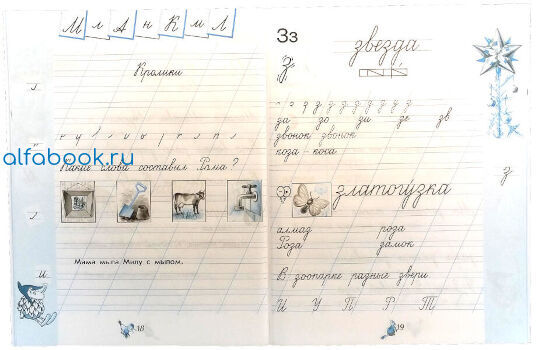 М л А н К и Л
Кролики
alfabook.ru
Какие слова составил Рома ?
Мама мыла Милу с мылом.
И
38
Зз
звезда
З
за зо зи зе зв
звонок звонок
коза - коса
З
златогузка
алмаз роза
Роза замок
В зоопарке разные звери
И У П Р Т
39